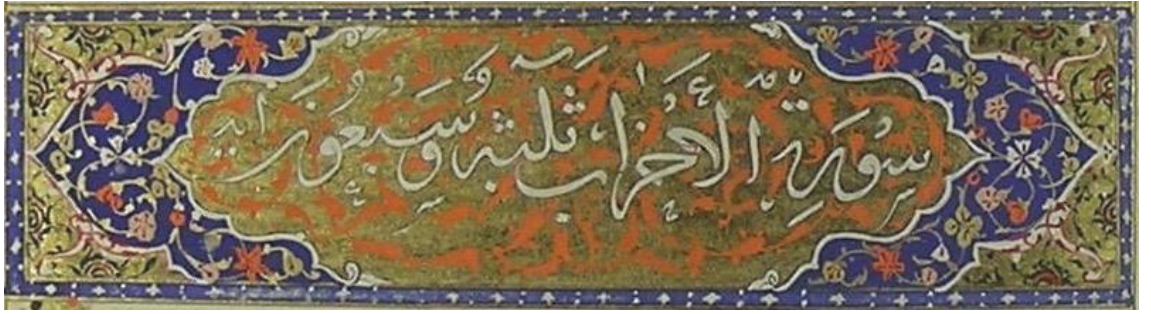 سورة الأحزاب ثلثة وسبعون آية